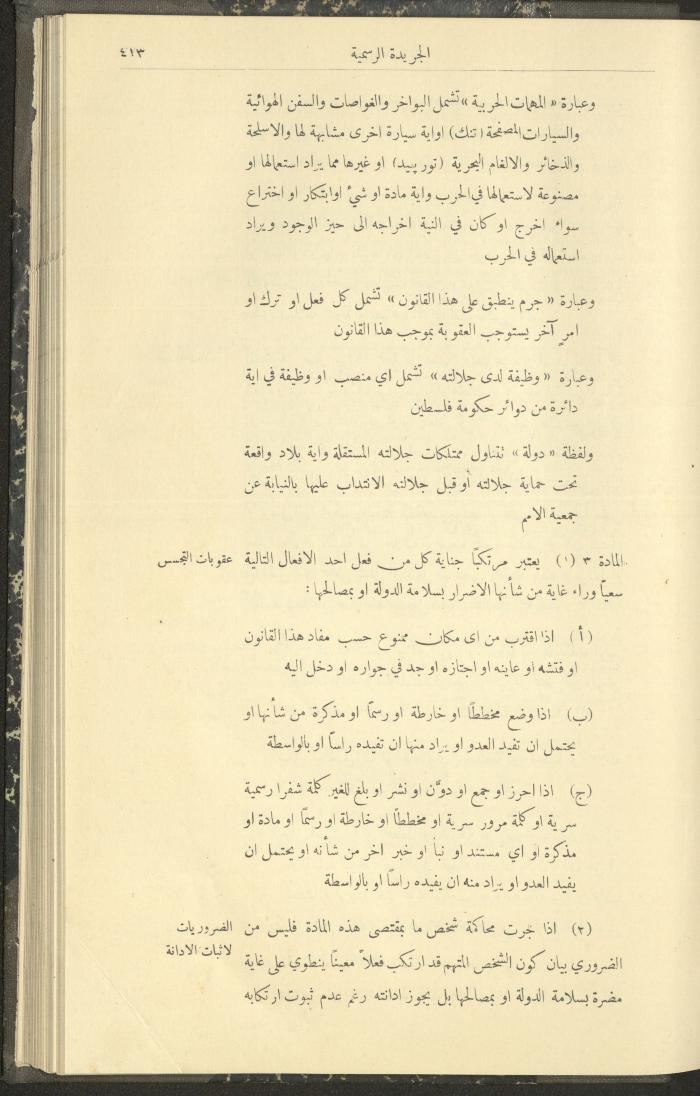 الجريدة الرسمية
٤١٣
وعبارة « المهمات الحربية » تشمل البواخر والغواصات والسفن الهوائية
والسيارات المصفحة (تنك) اواية سيارة اخرى مشابهة لها والاسلحة
والذخائر والالغام البحرية (تورپيد) او غيرها مما يراد استعمالها او
مصنوعة لاستعمالها في الحرب واية مادة او شيء اوابتكار او اختراع
سواء اخرج او كان في النية اخراجه الى حيز الوجود ويراد
استعماله في الحرب
وعبارة « جرم ينطبق على هذا القانون » تشمل كل فعل او ترك او
امرٍ آخر يستوجب العقوبة بموجب هذا القانون
وعبارة « وظيفة لدى جلالته » تشمل اي منصب او وظيفة في اية
دائرة من دوائر حكومة فلسطين
ولفظة « دولة » تتناول ممتلكات جلالته المستقلة واية بلاد واقعة
تحت حماية جلالته أو قبل جلالته الانتداب عليها بالنيابة عن
جمعية الامم
المادة ٣ (١) يعتبر مرتكبًا جناية كل من فعل احد الافعال التالية
عقوبات التجسس
سعيًا وراء غاية من شأنها الاضرار بسلامة الدولة او بمصالحها :
(أ) اذا اقترب من اى مكان ممنوع حسب مفاد هذا القانون
او فتشه او عاينه او اجتازه او جد في جواره او دخل اليه
(ب) اذا وضع مخططًا او خارطة او رسمًا او مذكرة من شأنها او
يحتمل ان تفيد العدو او يراد منها ان تفيده راسًا او بالواسطة
(ج) اذا احرز او جمع او دوَّن او نشر او بلغ للغير كلمة شفرا رسمية
سرية او كلمة مرور سرية او مخططًا او خارطة او رسمًا او مادة او
مذكرة او اي مستند او نبأ او خبر اخر من شأنه او يحتمل ان
يفيد العدو او يراد منه ان يفيده راسًا او بالواسطة
(٢) اذا جرت محاكمة شخص ما بمقتضى هذه المادة فليس من
الضروريات
لاثبات الادانة
الضروري بيان كون الشخص المتهم قد ارتكب فعلاً معينًا ينطوي على غاية
مضرة بسلامة الدولة او بمصالحها بل يجوز ادانته رغم عدم ثبوت ارتكابه